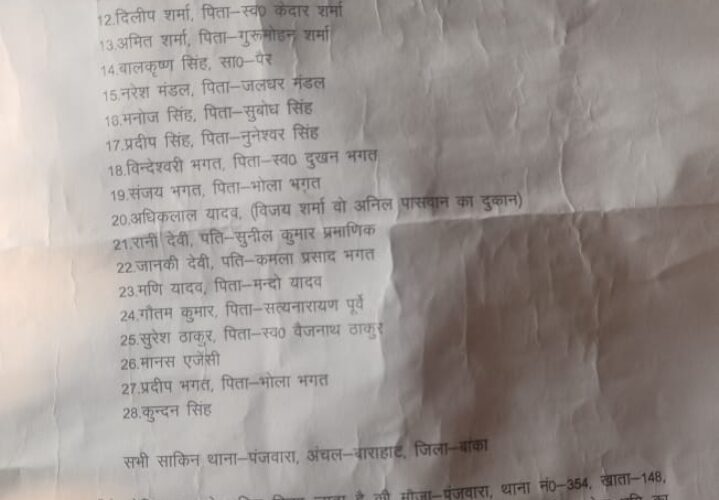 12.दिलीप शर्मा, पिता–स्व0 केदार शर्मा
13.अमित शर्मा, पिता–गुरूमोहन शर्मा
14.बालकृष्ण सिंह, सा0–पैर
15.नरेश मंडल, पिता–जलधर मंडल
16.मनोज सिंह, पिता–सुबोध सिंह
17.प्रदीप सिंह, पिता–नुनेश्वर सिंह
18.विन्देश्वरी भगत, पिता–स्व0 दुखन भगत
19.संजय भगत, पिता–भोला भगत
20.अधिकलाल यादव, (विजय शर्मा वो अनिल पासवान का दुकान)
21.रानी देवी, पति–सुनील कुमार प्रमाणिक
22.जानकी देवी, पति–कमला प्रसाद भगत
23.मणि यादव, पिता–मन्दो यादव
24.गौतम कुमार, पिता–सत्यनारायण पूर्वे
25.सुरेश ठाकुर, पिता–स्व0 वैजनाथ ठाकुर
26.मानस एजेंसी
27.प्रदीप भगत, पिता–भोला भगत
28.कुन्दन सिंह
सभी साकिन थाना–पंजवारा, अंचल–बाराहाट, जिला–बांका
मौजा–पंजवारा, थाना नं0–354, खाता–148,